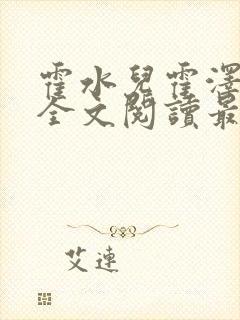 霍水兒霍澤
全文閱讀最
艾連